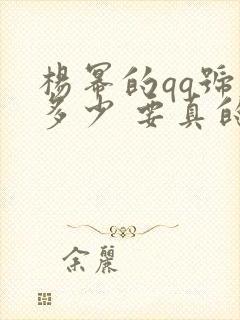 楊冪的qq號
多少 要真的
余麗